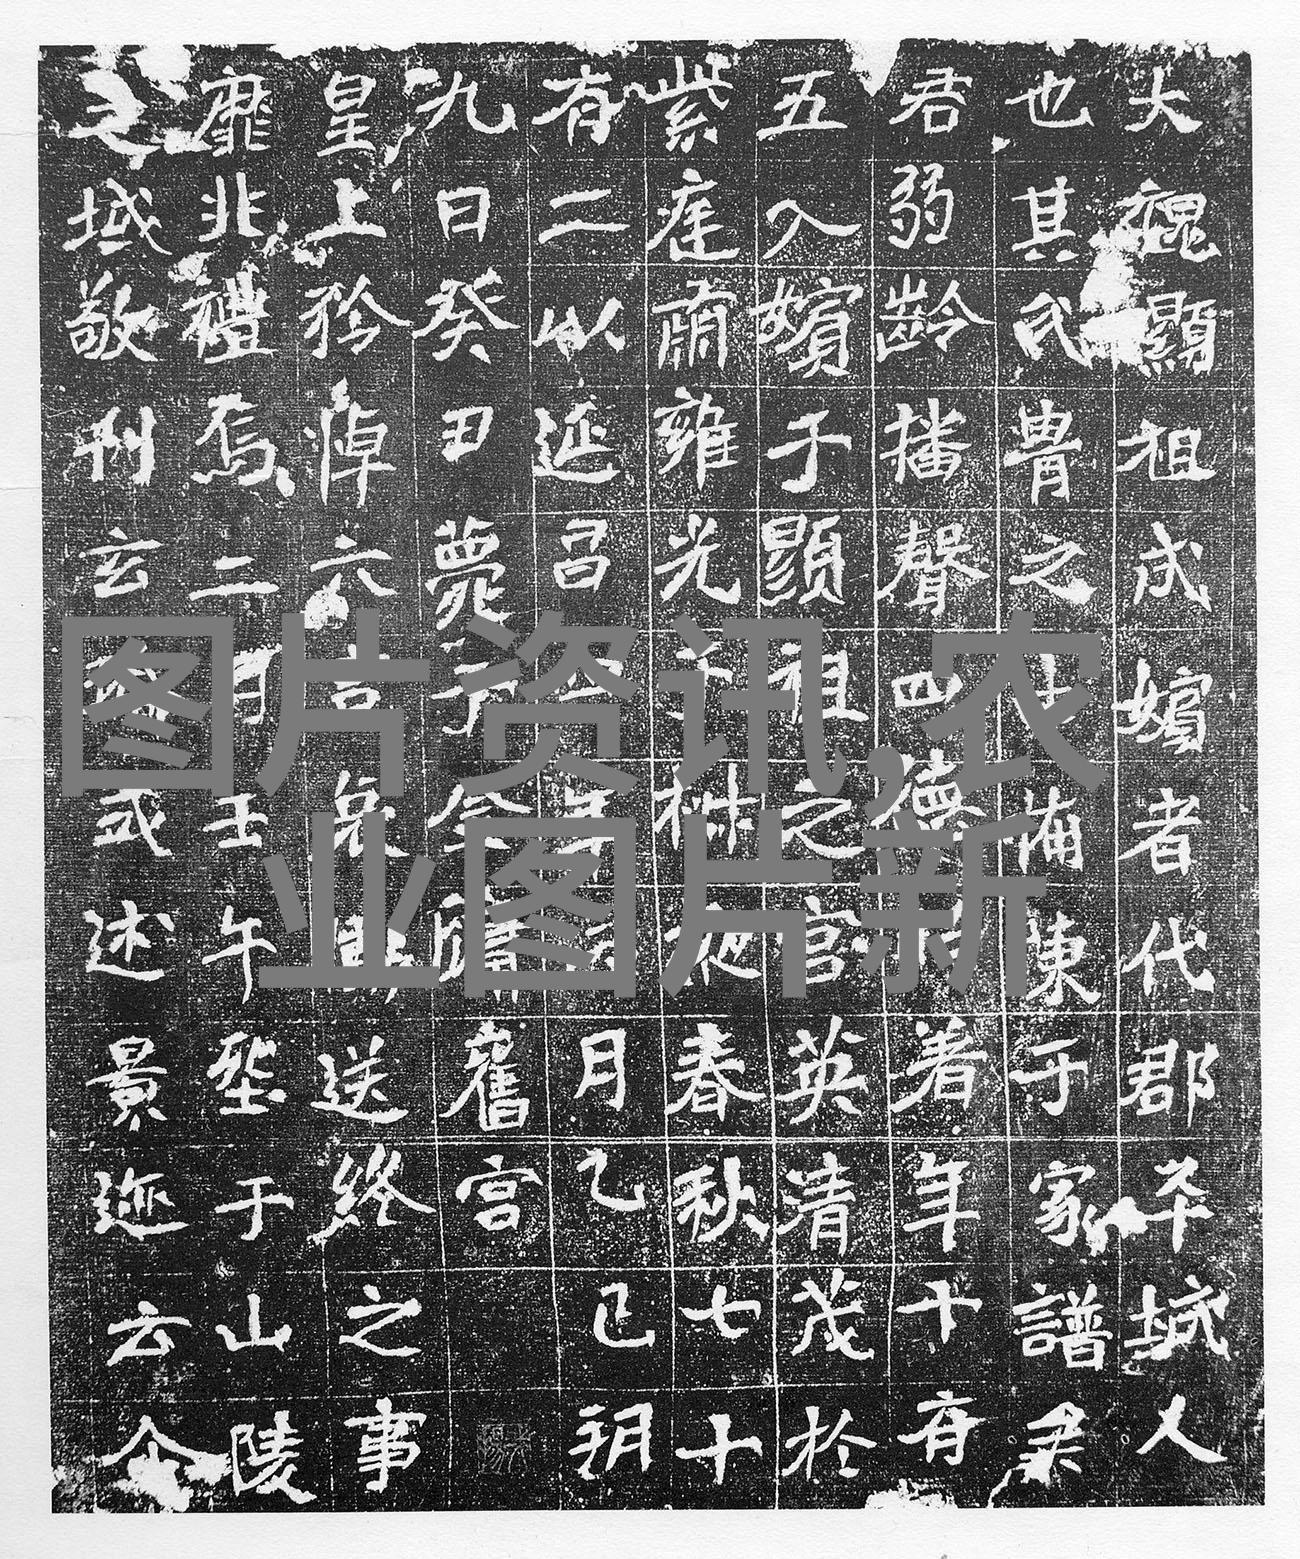 大魏顯祖成嬪者代郡平城人
也其氏胄之備陳于家譜
君弱齡播聲四德著年十有
五入嬪于顯祖之宮英清茂於
紫庭肅雍光于椒掖春秋七十
有二以延昌四年正月乙巳朔
九日癸丑薨于金墉舊宮
皇上矜悼六宮哀慟送終之事
靡非禮焉二月壬午堊于山陵
之域敬刊玄式述景迹云尒
图片资讯,农
业图片新